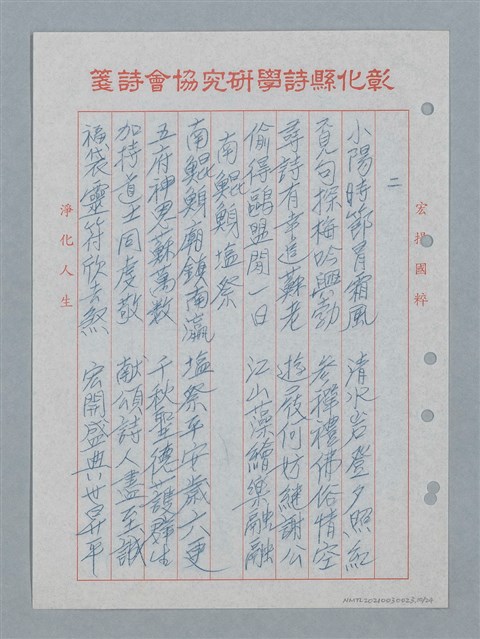 彰化縣詩學研究協會詩箋
宏揚國粹
二
小陽時節冒霜風 清水岩登夕照紅
覓句探梅吟興動 參禪禮佛俗情空
尋詩有幸追蘇老 遊屐何妨繼謝公
偷得鷗盟閒一日 江山藻繪樂融融
南鯤鯓塩祭
南鯤鯓廟鎮南瀛 塩祭平安歲六更
五府神恩蘇萬數 千秋聖德護群生
加持道士同虔敬 献頌詩人盡至誠
福袋靈符欣去煞 宏開盛典世昇平
淨化人生